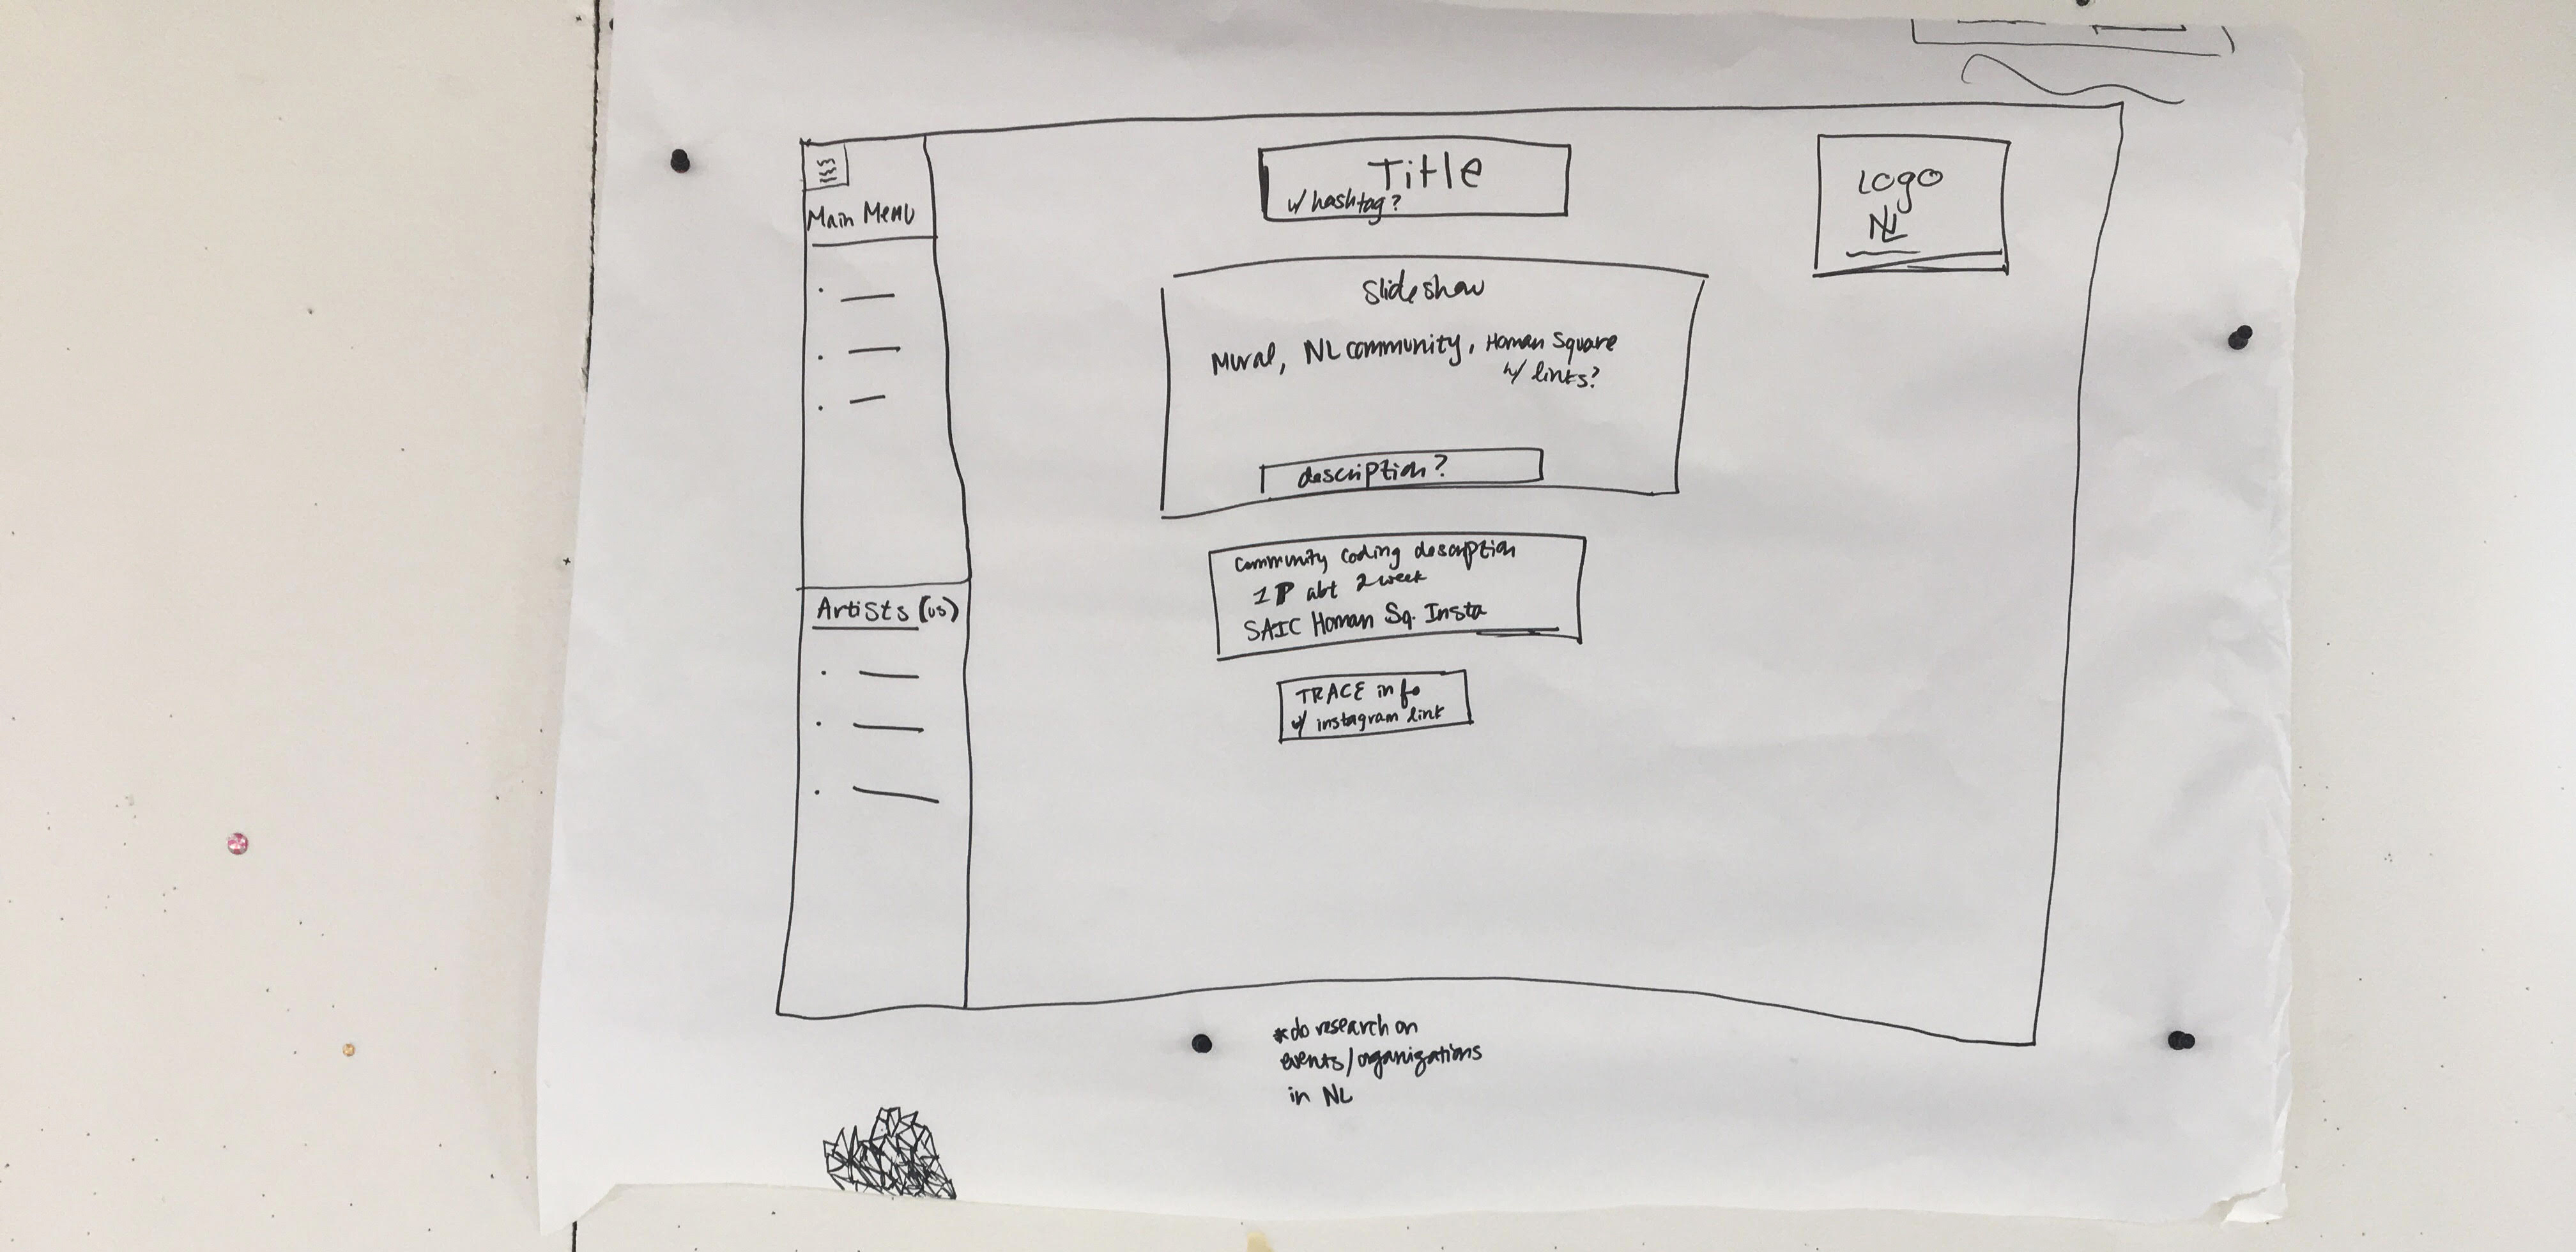 Main Menu
Artists (us)
Title
w/ hashtag?
Logo
NL
Slideshow
Mural, NL community, Homan Square
w/ links?
description?
Community coding description
1P abt 2 week
SAIC Homan Sq. Insta
TRACE info
w/ instagram link
*do research on
events/organizations
in NL